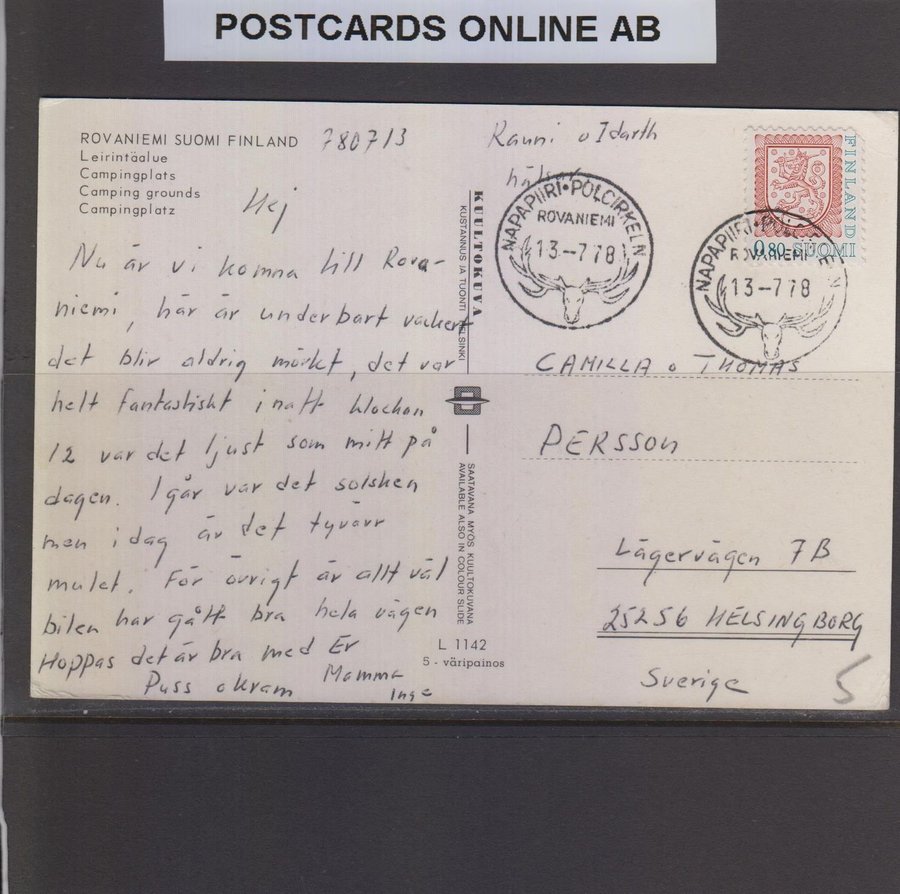 POSTCARDS ONLINE AB
ROVANIEMI SUOMI FINLAND 780713
Leirintäalue
Campingplats
Camping grounds
Campingplatz
Hej
Nu är vi komna till Rova-
niemi, här är underbart vackert
det blir aldrig mörkt, det var
helt fantastiskt inatt klockan
12 var det ljust som mitt på
dagen. Igår var det solsken
men idag är det tyvärr
mulet. För övrigt är allt väl
bilen har gått bra hela vägen
Hoppas det är bra med Er
Puss o kram Mamma
Inge
KUULTOKUVA
KUSTANNUS JA TUONTI HELSINKI
SAATAVANA MYÖS KUULTOKUVANA
AVAILABLE ALSO IN COLOUR SLIDE
L 1142
5 - väripainos
Rauni o
NAPAPIIRI • POLCIRKELN
ROVANIEMI
13-7 78
FINLAND
0.80 SUOMI
NAPAPIIRI • POLCIRKELN
ROVANIEMI
13-7 78
CAMILLA o THOMAS
PERSSON
Lägervägen 7B
25256 HELSINGBORG
Sverige
5